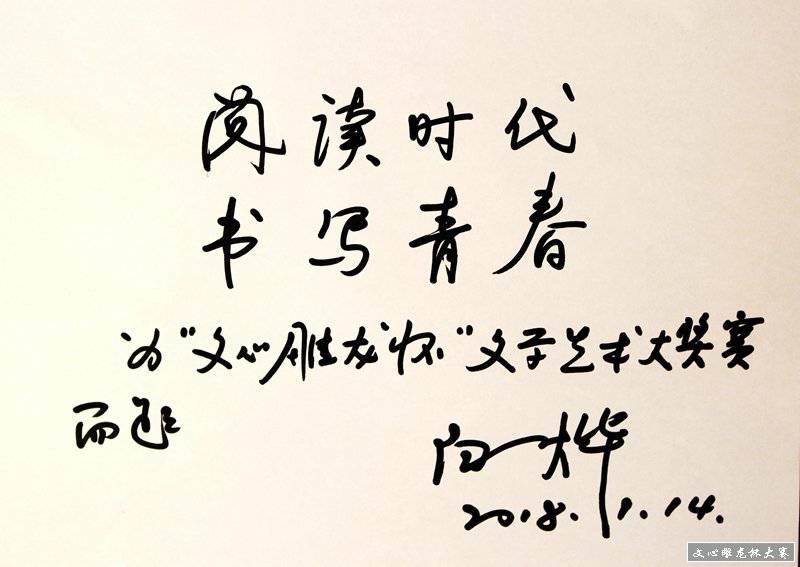 阅读时代
书写青春
为"文心雕龙杯"文学艺术大奖赛
而题
白桦
2018.1.14.
文心雕龙杯大赛